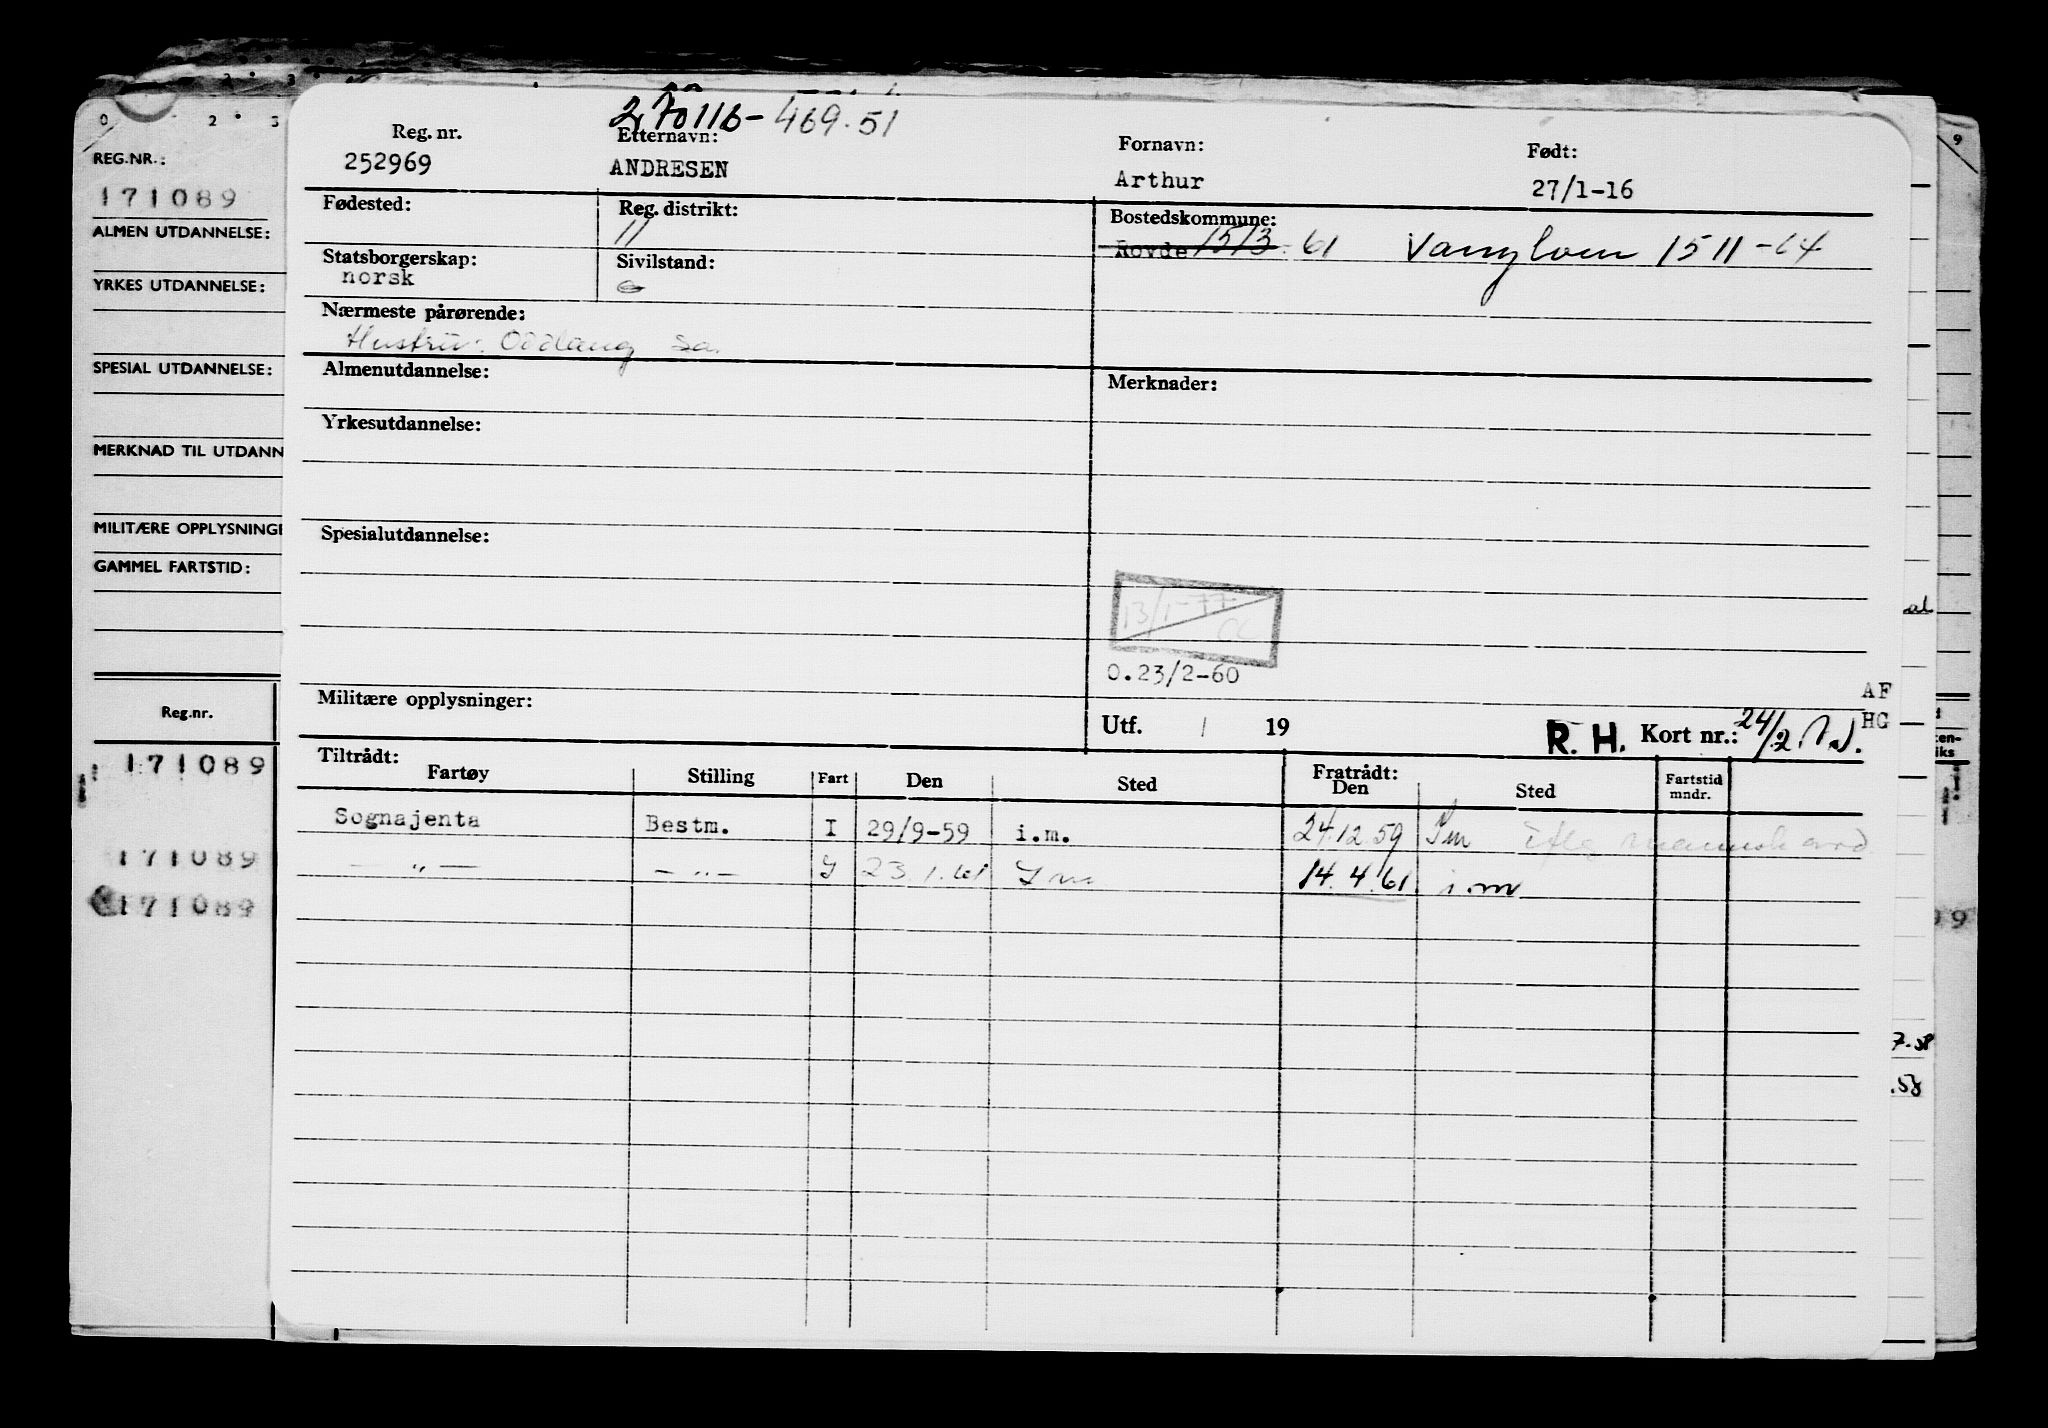 0 2 3
REG.NR.:
171089
ALMEN UTDANNELSE:
YRKES UTDANNELSE:
SPESIAL UTDANNELSE:
MERKNAD TIL UTDANN
MILITÆRE OPPLYSNINGE
GAMMEL FARTSTID:
Reg.nr.
171089
171089
171089
270116-469.51
Reg. nr. Etternavn: Fornavn: Født:
252969 ANDRESEN Arthur 27/1-16
Fødested: Reg. distrikt: Bostedskommune:
11 Rovde 1513-61 Vanylven 1511-64
Statsborgerskap: Sivilstand:
norsk G
Nærmeste pårørende:
Hustru: Oddlaug sa.
Almenutdannelse: Merknader:
Yrkesutdannelse:
Spesialutdannelse:
13/1-77
OL
0.23/2-60
AF
HG
Militære opplysninger: Utf. / 19 R. H. Kort nr.: 24/2
Tiltrådt: Fratrådt:
Fartøy Stilling Fart Den Sted Den Sted Fartstid mndr.
Sognajenta Bestm. I 29/9-59 i.m. 24.12.59 Im
— " — — " — I 23.1.61 I m 14.4.61. i.m
9
al
en-
iks
7.58
.58
99